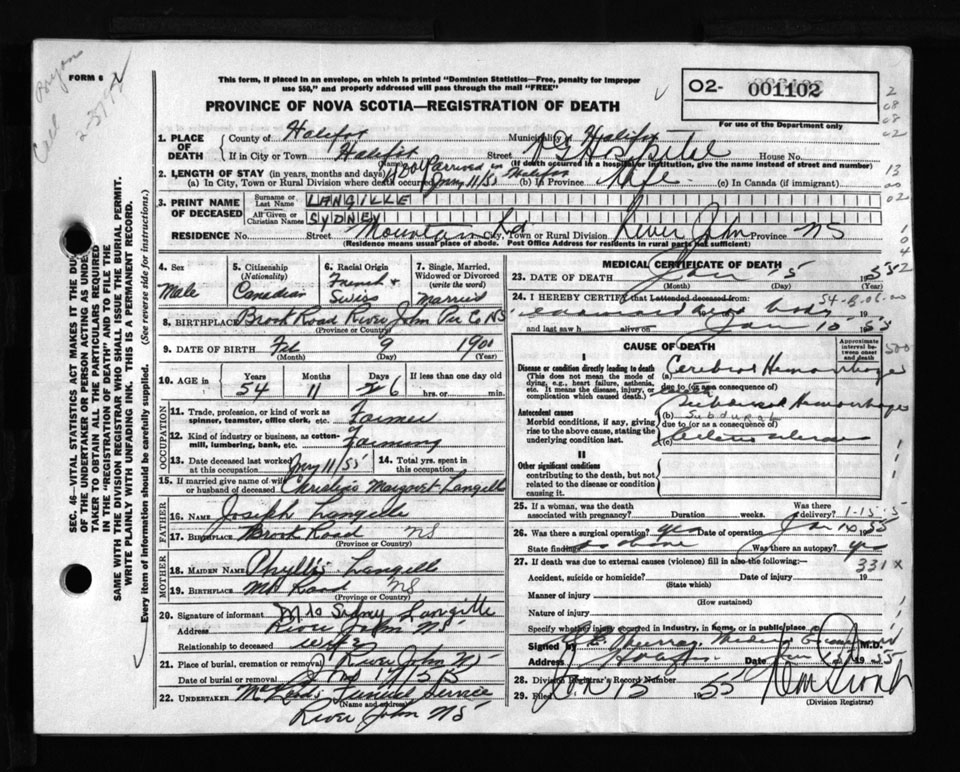 FORM 6
This form, if placed in an envelope, on which is printed "Dominion Statistics—Free, penalty for improper
use $50," and properly addressed will pass through the mail "FREE"
PROVINCE OF NOVA SCOTIA—REGISTRATION OF DEATH
O2- 001102
For use of the Department only
1. PLACE OF DEATH
County of Halifax Municipality Halifax
If in City or Town Halifax Street VG Hospital House No.
(If death occurred in a hospital or institution, give the name instead of street and number)
2. LENGTH OF STAY (in years, months and days)
(a) In City, Town or Rural Division where death occurred (b) In Province Life (c) In Canada (if immigrant)
3. PRINT NAME OF DECEASED
Surname or Last Name LANGILLE
All Given or Christian Names SYDNEY
RESIDENCE No. Street Mountain Rd City, Town or Rural Division River John Province NS
(Residence means usual place of abode. Post Office Address for residents in rural parts not sufficient)
4. Sex Male
5. Citizenship (Nationality) Canadian
6. Racial Origin French & Swiss
7. Single, Married, Widowed or Divorced (write the word) Married
8. BIRTHPLACE Brook Road River John Pic Co NS
(Province or Country)
9. DATE OF BIRTH Feb 9 1900
(Month) (Day) (Year)
10. AGE in Years 54 Months 11 Days 26 If less than one day old
hrs. or min.
OCCUPATION
11. Trade, profession, or kind of work as spinner, teamster, office clerk, etc. Farmer
12. Kind of industry or business, as cotton-mill, lumbering, bank, etc. Farming
13. Date deceased last worked at this occupation 11/55 14. Total yrs. spent in this occupation
15. If married give name of wife or husband of deceased Christina Margaret Langille
FATHER
16. NAME Joseph Langille
17. BIRTHPLACE Brook Road NS
(Province or Country)
MOTHER
18. MAIDEN NAME Phyllis Langille
19. BIRTHPLACE Road NS
(Province or Country)
20. Signature of informant Mrs Sidney Langille
Address River John NS
Relationship to deceased wife
21. Place of burial, cremation or removal River John NS
Date of burial or removal
22. UNDERTAKER Funeral Service
(Name and address)
River John NS
MEDICAL CERTIFICATE OF DEATH
23. DATE OF DEATH Jan 1955
(Month) (Day)
24. I HEREBY CERTIFY that I attended deceased from:
examined dead body 19
and last saw h alive on Jan 15 1955
CAUSE OF DEATH
Approximate interval between onset and death
I
Disease or condition directly leading to death
(This does not mean the mode of dying, e.g., heart failure, asthenia, etc. It means the disease, injury, or complication which caused death.)
(a) Cerebral Hemorrhage
due to (or as a consequence of)
Antecedent causes
Morbid conditions, if any, giving rise to the above cause, stating the underlying condition last.
Subdural Hemorrhage
(b) Subdural
due to (or as a consequence of)
(c)
II
Other significant conditions
contributing to the death, but not related to the disease or condition causing it.
25. If a woman, was the death associated with pregnancy? Duration weeks. Was there delivery?
26. Was there a surgical operation? yes Date of operation Jan 1955
State findings as above Was there an autopsy? yes
27. If death was due to external causes (violence) fill in also the following:—
331 X
Accident, suicide or homicide? Date of injury 19
(State which)
Manner of injury
(How sustained)
Nature of injury
Specify whether injury occurred in industry, in home, or in public place
Signed by Murray Medical Examiner M.D.
Address Date Jan 1955
28. Division Registrar's Record Number
29. Filed 15 1955
(Division Registrar)
SEC. 46—VITAL STATISTICS ACT MAKES IT THE DUTY
OF THE UNDERTAKER OR PERSON ACTING AS UNDER-
TAKER TO OBTAIN ALL THE PARTICULARS REQUIRED
IN THE "REGISTRATION OF DEATH" AND TO FILE THE
SAME WITH THE DIVISION REGISTRAR WHO SHALL ISSUE THE BURIAL PERMIT.
WRITE PLAINLY WITH UNFADING INK. THIS IS A PERMANENT RECORD.
Every item of Information should be carefully supplied. (See reverse side for instructions.)